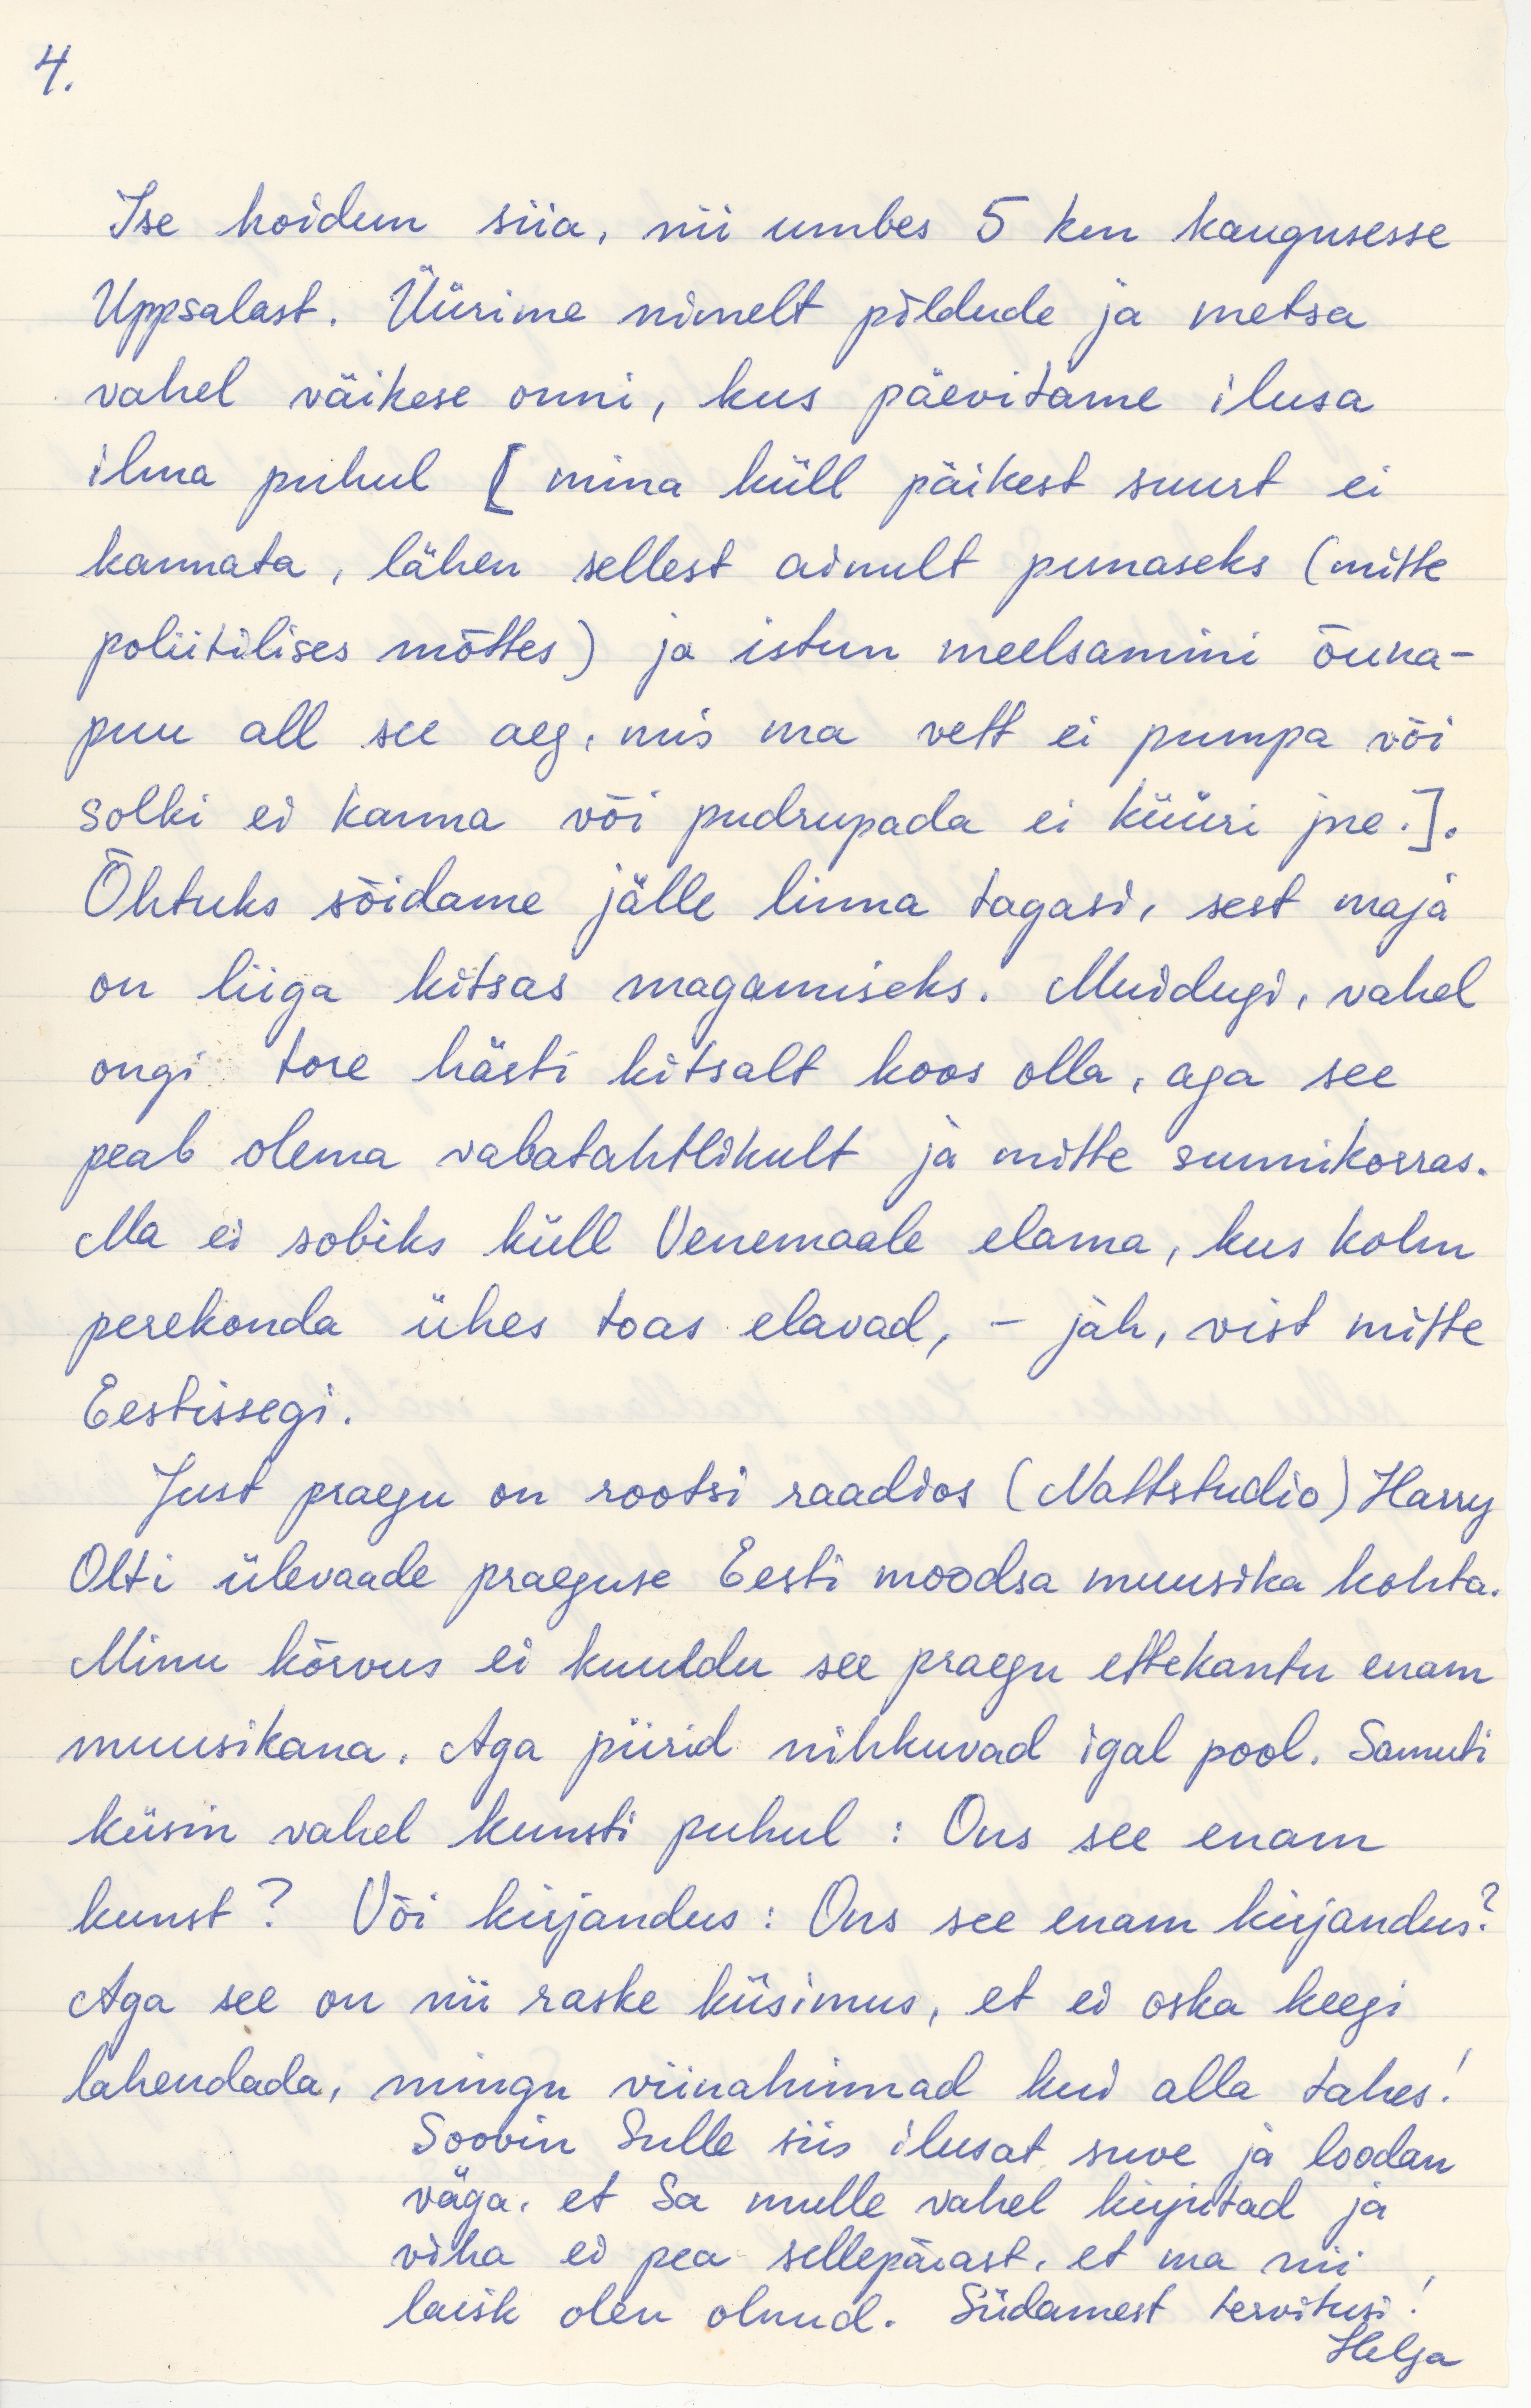 4.
Ise hoidun siia, nii umbes 5 km kaugusesse
Uppsalast. Üürime nimelt põldude ja metsa
vahel väikese onni, kus päevitame ilusa
ilma puhul [mina küll päikest suurt ei
kannata, lähen sellest ainult punaseks (mitte
poliitilises mõttes) ja istun meelsamini õuna-
puu all see aeg, mis ma vett ei pumpa või
solki ei kanna või pudrupada ei küüri jne.].
Õhtuks sõidame jälle linna tagasi, sest maja
on liiga kitsas magamiseks. Muidugi, vahel
ongi tore hästi kitsalt koos olla, aga see
peab olema vabatahtlikult ja mitte sunnikorras.
Ma ei sobiks küll Venemaale elama, kus kolm
perekonda ühes toas elavad, – jah, vist mitte
Eestissegi.
Just praegu on rootsi raadios (Nattstudio) Harry
Olti ülevaade praeguse Eesti moodsa muusika kohta.
Minu kõrvus ei kuuldu see praegu ettekantu enam
muusikana. Aga piirid nihkuvad igal pool. Samuti
küsin vahel kunsti puhul: Ons see enam
kunst? Või kirjandus: Ons see enam kirjandus?
Aga see on nii raske küsimus, et ei oska keegi
lahendada, mingu viinahinnad kui alla tahes!
Soovin Sulle siis ilusat suve ja loodan
väga, et Sa mulle vahel kirjutad ja
viha ei pea sellepärast, et ma nii
laisk olen olnud. Südamest tervitusi!
Helga